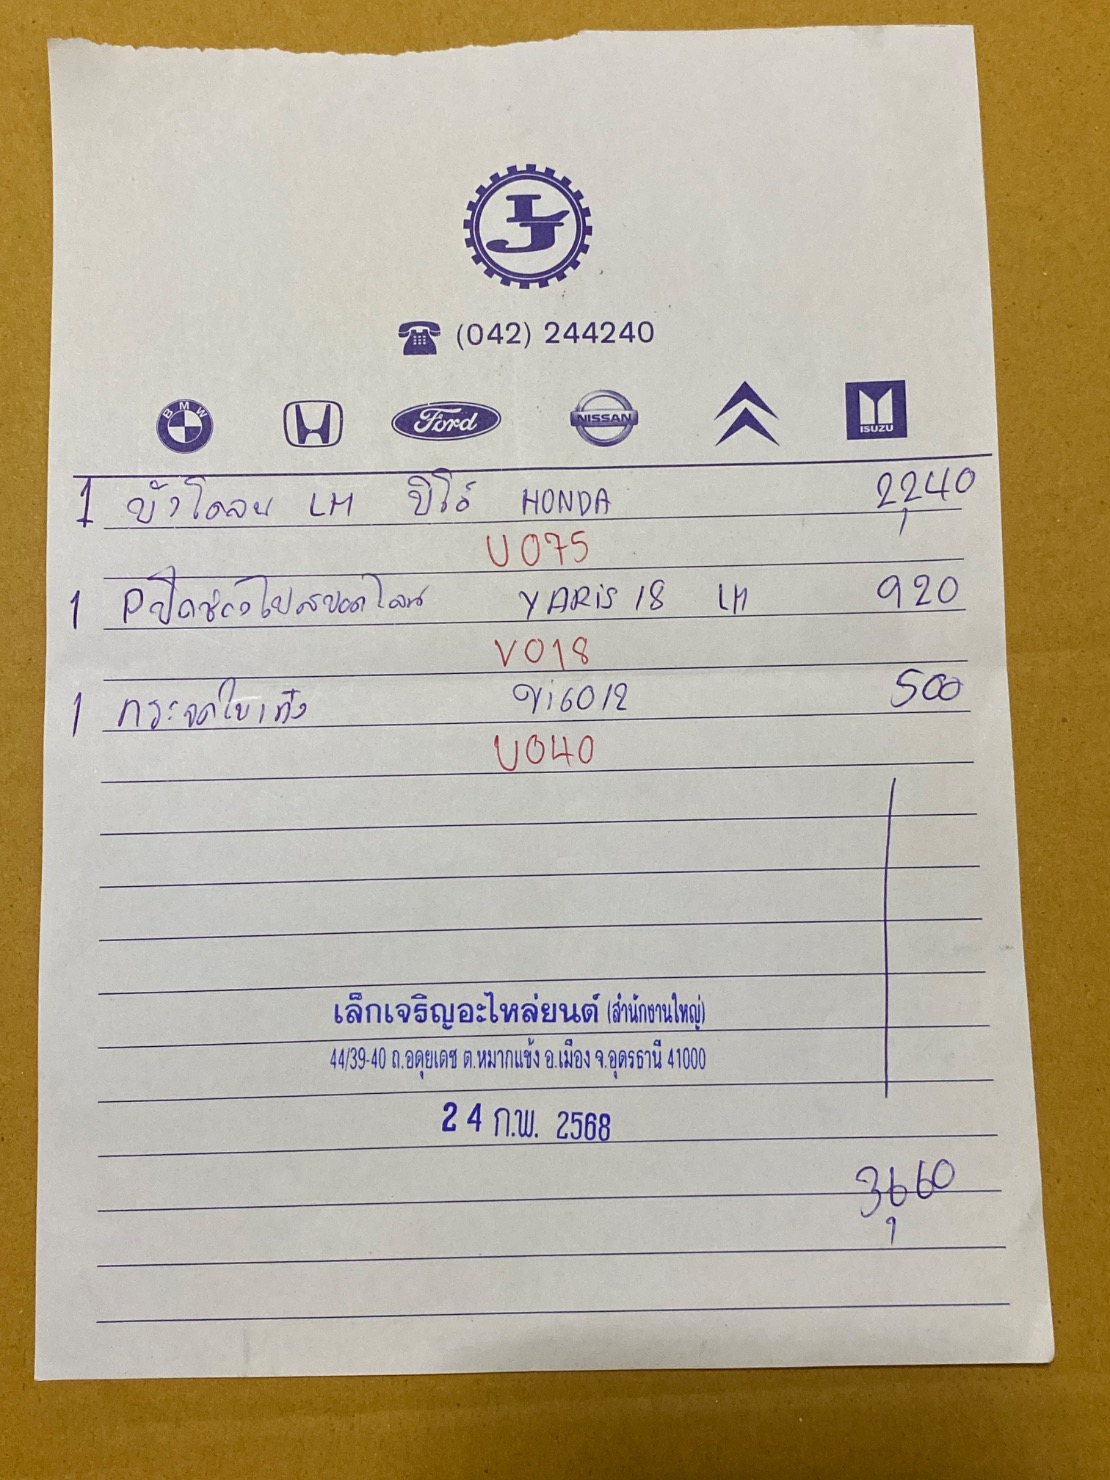 LJ
(042) 244240
BMW Ford NISSAN ISUZU
1 บังโคลน LH ปีโอ้ HONDA 2,240
U075
1 Pปิดช่องไฟสปอตไลน์ YARIS 18 LH 920
V018
1 กระจกใบเท้ง Vi6012 500
U040
เล็กเจริญอะไหล่ยนต์ (สำนักงานใหญ่)
44/39-40 ถ.อดุยเดช ต.หมากแข้ง อ.เมือง จ.อุดรธานี 41000
24 ก.พ. 2568
3,660